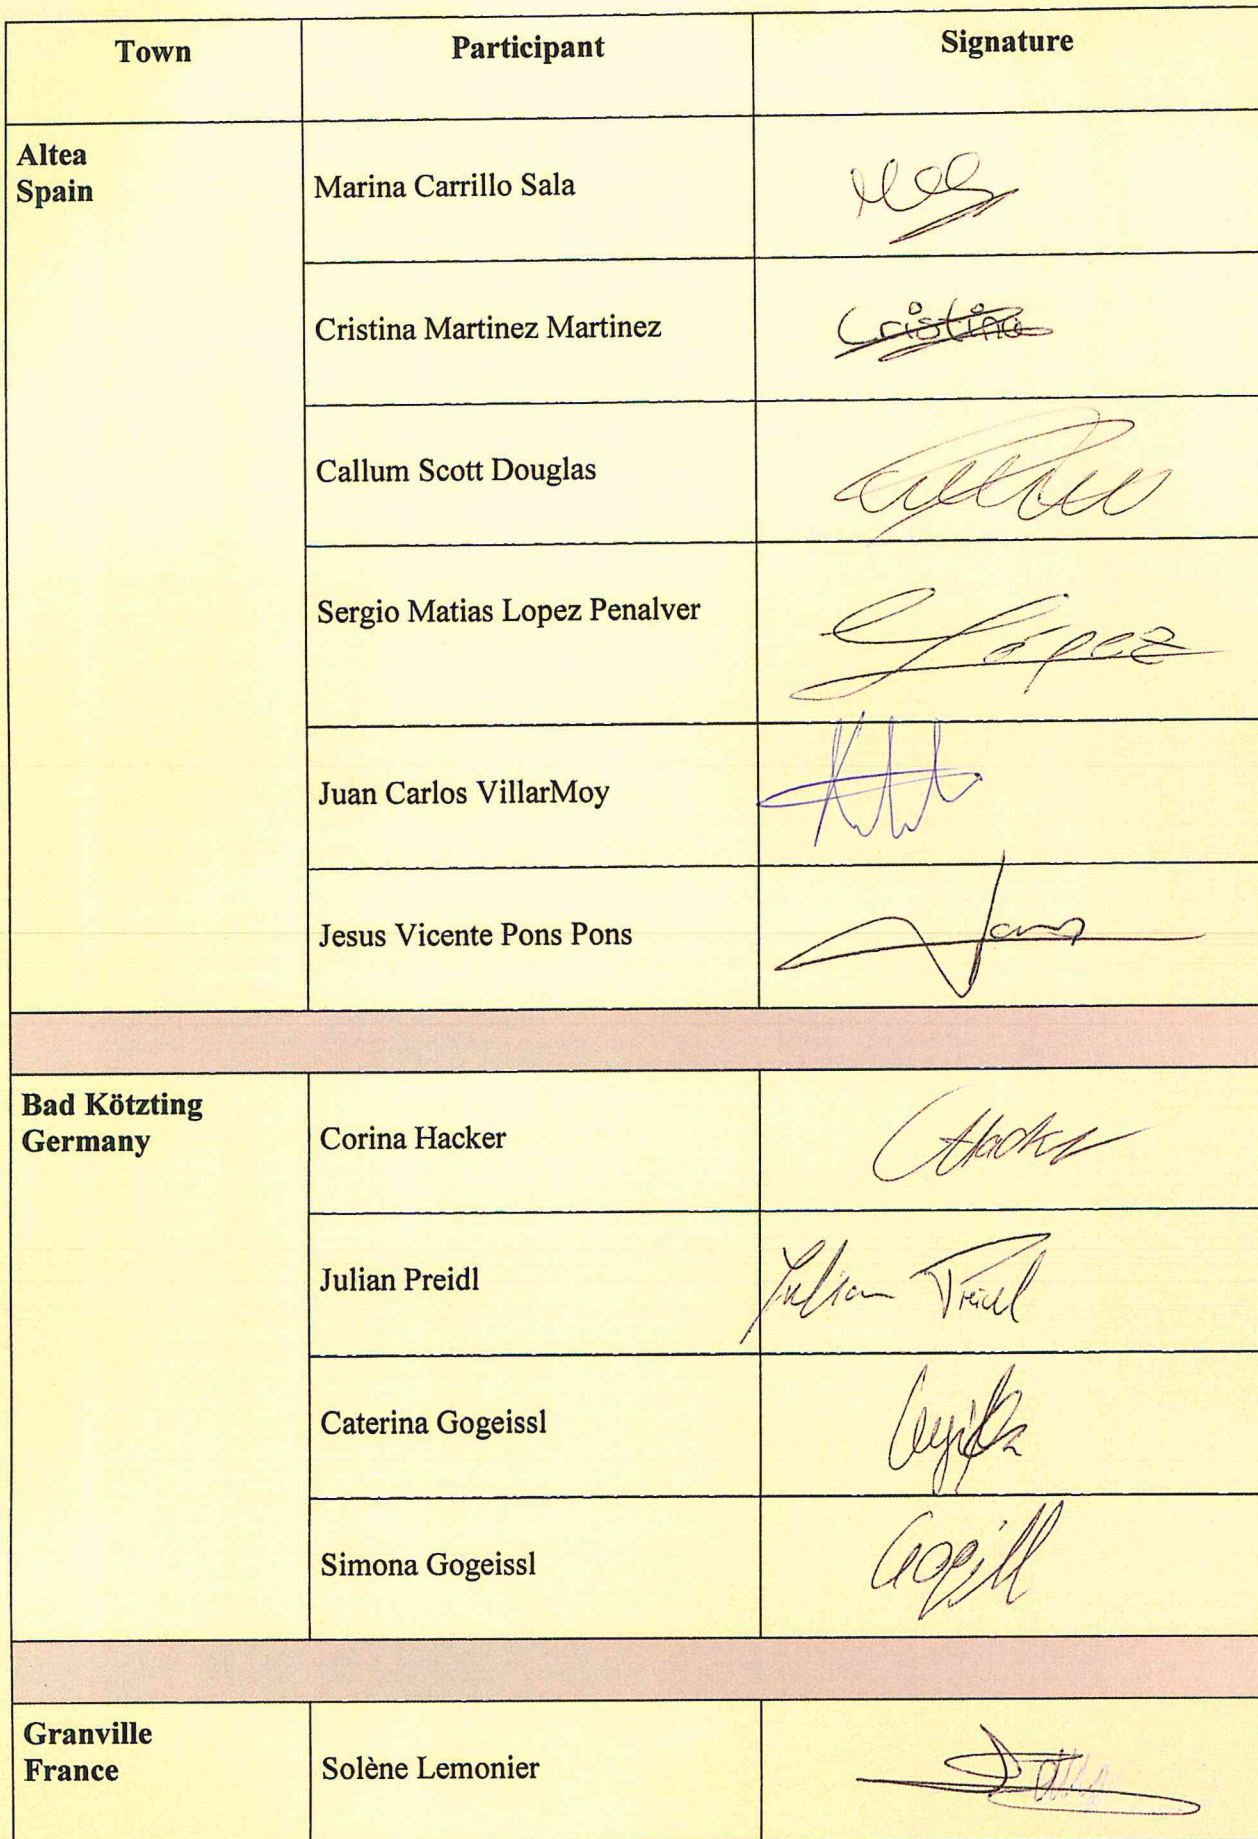 Town Participant Signature
Altea
Spain
Marina Carrillo Sala
Cristina Martinez Martinez Cristina
Callum Scott Douglas
Sergio Matias Lopez Penalver López
Juan Carlos VillarMoy
Jesus Vicente Pons Pons
Bad Kötzting
Germany
Corina Hacker CHacker
Julian Preidl Julian Preidl
Caterina Gogeissl
Simona Gogeissl
Granville
France
Solène Lemonier